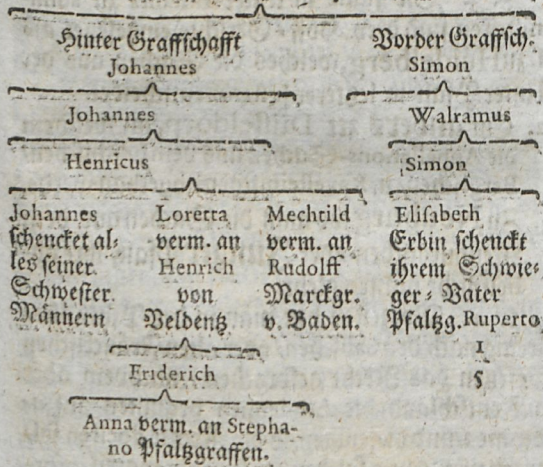 Hinter Graffschafft
Johannes
Johannes
Henricus
Johannes
schencket al-
les seiner
Schwester
Männern
Loretta
verm. an
Henrich
von
Veldentz
Mechtild
verm. an
Rudolff
Marckgr.
v. Baden.
Friderich
Anna verm. an Stepha-
no Pfaltzgraffen.
Vorder Graffsch.
Simon
Walramus
Simon
Elisabeth
Erbin schenckt
ihrem Schwie-
ger-Vater
Pfaltzg. Ruperto
1
5